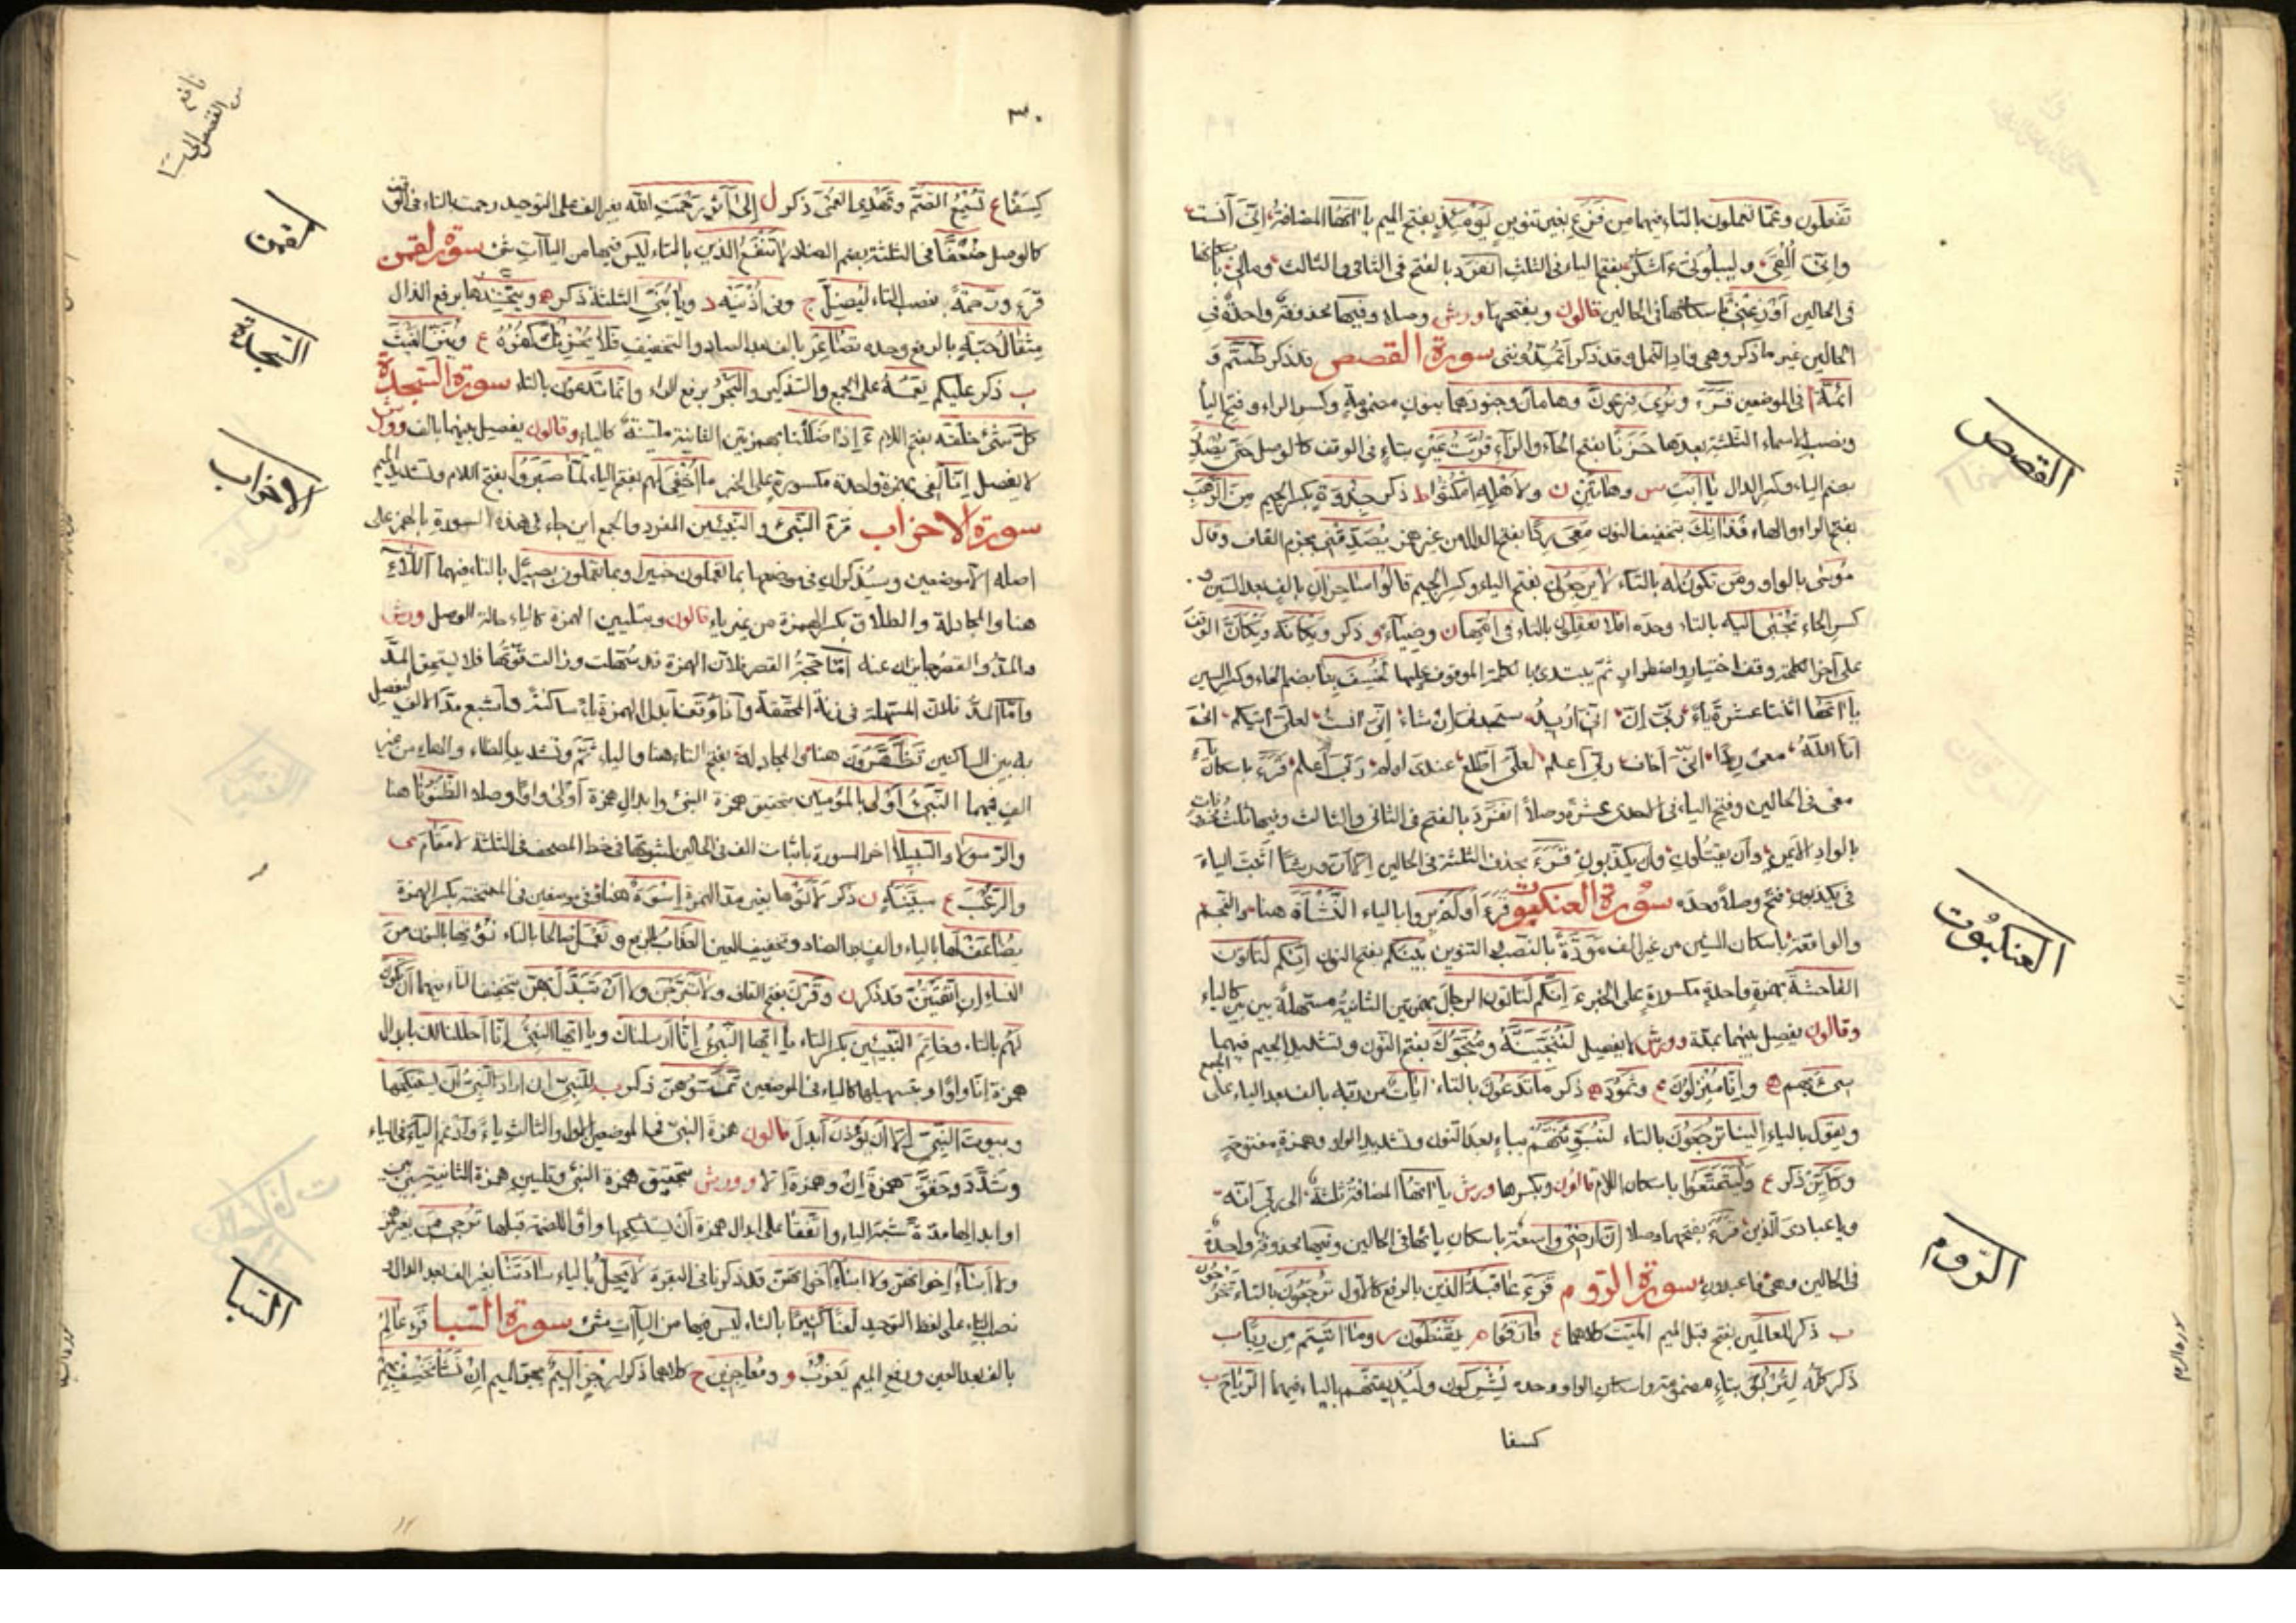 تفعلون وعمّا تعملون بالتاء فيهما من فزع بغير تنوين يومئذ بفتح الميم ياءاتها المضافة إنى آنست
وإنى ألقى وليبلونى ءأشكر بفتح الياء فى الثلث انفرد بالفتح فى الثانى والثالث ومالى
فى الحالين أوزعنى باسكانها فى الحالين قالون ويفتحها ورش وصلا وفيها محذوفة واحدة فى
الحالين غير ما ذكر وهى واد النمل وقد ذكر أتمدونى سورة القصص قد ذكر طسم و
ائمة فى الموضعين قرء ونرى فرعون وهامان وجنودهما بنون مضمومة وكسر الراء وفتح اليا
ونصب الاسماء الثلثة بعدها حزنا بفتح الحاء والزاء قرت عين بتاء فى الوقف كالوصل حتى يصدر
بضم الياء وكسر الدال يا أبت س وهاتين ن ولأهله امكثوا ط ذكر جذوة بكسر الجيم من الرهب
بفتح الراء والهاء فذانك بتخفيف النون معى ردا بفتح الدال من غير همز يصدقنى بجزم القاف وقال
موسى بالواو ومن تكون له بالتاء لا يرجعون بفتح الياء وكسر الجيم قالوا ساحران بالف بعد السين و
كسر الحاء تجبى اليه بالتاء وحده افلا تعقلون بالتاء فى امها ن وضياء و ذكر ويكانه ويكان الوقف
على آخر الكلمة وقف اختيار واضطرار ثم يبتدئ بالكلمة الموقوف عليها لخسف بنا بضم الخاء وكسر السين
ياءاتها اثنتا عشرة ياء ربى ان انى اريد ستجدنى ان شاء انى آنست لعلى آتيكم انى
أنا الله معى ردا انى أخاف ربى أعلم لعلى أطلع عندى أولم ربى أعلم قرء باسكان ياء
معى فى الحالين وفتح الياء فى احدى عشرة وصلا انفرد بالفتح فى الثانى والثالث وفيها ثلث محذوفات
بالواد الايمن وأن يقتلون وأن يكذبون قرء بحذف الثلثة فى الحالين الا أن ورشا أثبت الياء
فى يكذبون فتح وصلا وحده سورة العنكبوت قرء أولم يروا بالياء النشأة هنا والنجم
والواقعة باسكان الشين من غير الف مودة بالنصب والتنوين بينكم بفتح النون إنكم لتأتون
الفاحشة بهمزة واحدة مكسورة على الخبر ءإنكم لتأتون الرجال بهمزتين الثانية مسهلة بين بين كالياء
وقالون يفصل بينهما بمدة وورش لا يفصل لننجينه ومنجوك بفتح النون وتشديد الجيم فيهما
سىء بهم ه وإنا منزلون ع وثمود ه ذكر ما تدعون بالتاء آيات من ربه بالف بعد الياء على الجمع
ويقول بالياء الينا ترجعون بالتاء لنبوئنهم بباء بعد النون وتشديد الواو وهمزة مفتوحة
وكاين ذكر ع وليتمتعوا باسكان اللام قالون وبكسرها ورش ياءاتها المضافة ثلثة الى ربى انه
ويا عبادى الذين قرء بفتحها وصلا إن أرضى واسعة باسكان يائها فى الحالين وفيها محذوفة واحدة
فى الحالين وهى فاعبدون سورة الروم قرء عاقبة الذين بالرفع كالاول ترجعون بالتاء تخرجون
ب ذكر للعالمين بفتح قبل الميم الميت كلاهما ع فارقوا م يقنطون ر وما آتيتم من ربا ب
ذكر كله لتربوا بتاء مضمومة واسكان الواو وحده يشركون وليذيقهم بالياء فيهما الرياح ب
كسفا
القصص
العنكبوت
الروم
٣٠
كسفا ع تسمع الصم وتهدى العمى ذكر ل إلى أثر رحمت الله بغير الف على التوحيد رحمت بالتاء فى الوقف
كالوصل ضعفا فى الثلثة بضم الضاد لا تنفع الذين بالتاء ليس فيها من الياآت شئ سورة لقمن
قرء ورحمة بنصب التاء ليضل ج وفى أذنيه د ويا بنى الثلثة ذكر ه ويتخذها برفع الذال
مثقال حبة بالرفع وحده تصاعر بالف بعد الصاد والتخفيف فلا يحزنك كفره ع وينزل الغيث
ب ذكر عليكم نعمه على الجمع والتذكير والبحر برفع الراء وانما تدعون بالتاء سورة السجدة
كل شئ خلقه بفتح اللام ءإذا ضللنا بهمزتين الثانية ملينة كالياء وقالون يفصل بينهما بالف وورش
لا يفصل إنا لفى بهمزة واحدة مكسورة على الخبر ما أخفى لهم بفتح الياء لما صبروا بفتح اللام وتشديد الميم
سورة الاحزاب قرء النبئ والنبيئين المفرد والجمع اين جاء فى هذه السورة بالهمز على
اصله الا موضعين وسيذكران فى موضعها بما تعملون خبيرا وبما تعملون بصيرا بالتاء فيهما اللاء
هنا والمجادلة والطلاق بكسر الهمزة من غير ياء قالون وبتليين الهمزة كالياء حالة الوصل ورش
والمد والقصر جايزان عنه أما حجة القصر فلان الهمزة قد سهلت وزالت قوتها فلا يستحق المد
وأما المد فلان المسهلة فى زنة المحققة وأما وقفا بدل الهمزة ياء ساكنة وأشبع مد الالف ليفصل
به بين الساكنين تظهرون هنا والمجادلة بفتح التاء هنا والياء ثم وتشديد الظاء والهاء من غير
الف فيهما النبئ أولى بالمؤمنين بتحقيق همزة النبئ وابدال همزة أولى واوا وصلا الظنونا هنا
والرسولا والسبيلا اخر السورة باثبات الف فى الحالين لثبوتها فى خط المصحف فى الثلثة لا مقام
والرعب ع مبينة ن ذكر لأتوها بغير مد الهمزة إسوة هنا وفى موضعين فى الممتحنة بكسر الهمزة
يضاعف لها بالياء والف بعد الضاد وتخفيف العين العذاب بالرفع وتعمل صالحا بالتاء نؤتها بالنون من
النساء ان اتقيتن قد ذكر ن وقرن بفتح القاف ولا تبرجن ولا أن تبدل بهن بتخفيف التاء فيهما أن تكون
لهم بالتاء وخاتم النبيئين بكسر التاء يا أيها النبئ إنا أرسلناك ويا أيها النبئ إنا أحللنا لك بابدال
همزة إنا واوا وتسهيلها كالياء فى الموضعين تمسوهن ذكر ب للنبى إن أراد النبئ أن يستنكحها
وبيوت النبى إلا أن يؤذن أبدل قالون همزة النبئ فى الموضعين الاول والثالث ياء وأدغم الياء فى الياء
وشدد وحقق همزة إن وهمزة إلا و ورش بتحقيق همزة النبئ وتليين همزة الثانية بين بين
او ابدالها مدة شبه الياء واتفقا على ابدال همزة أن يستنكحها واوا لضمة قبلها ترجى من بغير همز
ولا أبناء إخوانهن ولا ابناء أخواتهن قد ذكرنا فى البقرة لا يحل بالياء سادتنا بغير الف بعد الدال و
نصب التاء على لفظ التوحيد لعنا كثيرا بالثاء ليس فيها من الياآت شئ سورة السبا قرء عالم
بالف بعد العين ورفع الميم يعزب و ومعاجزين ح كلاهما ذكرا رجز اليم بجر الميم إن نشأ نخسف بهم
نافع
من القصص الى سبا
لقمن
السجدة
الاحزاب
السبا